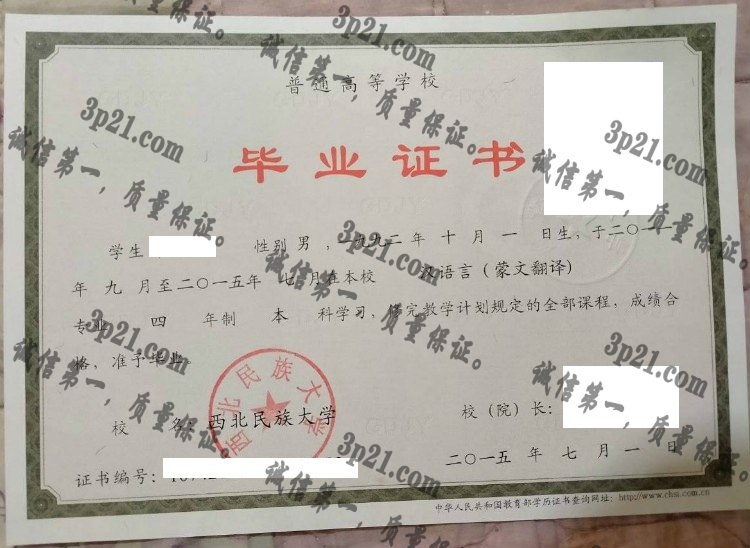 普通高等学校
毕业证书
学生 性别 男 ，一九九二 年 十 月 一 日生，于二〇一一
年 九 月至二〇一五年 七 月在本校 汉语言（蒙文翻译）
专业 四 年制 本 科学习，修完教学计划规定的全部课程，成绩合
格，准予毕业
校 名：西北民族大学
校（院）长：
西北民族大学
证书编号：
二〇一五 年 七 月 一 日
中华人民共和国教育部学历证书查询网址：http://www.chsi.com.cn
3p21.com
诚信第一，质量保证。
3p21.com
诚信第一，质量保证。
3p21.com
诚信第一，质量保证。
3p21.com
诚信第一，质量保证。
3p21.com
诚信第一，质量保证。
3p21.com
诚信第一，质量保证。
3p21.com
诚信第一，质量保证。
3p21.com
诚信第一，质量保证。
3p21.com
诚信第一，质量保